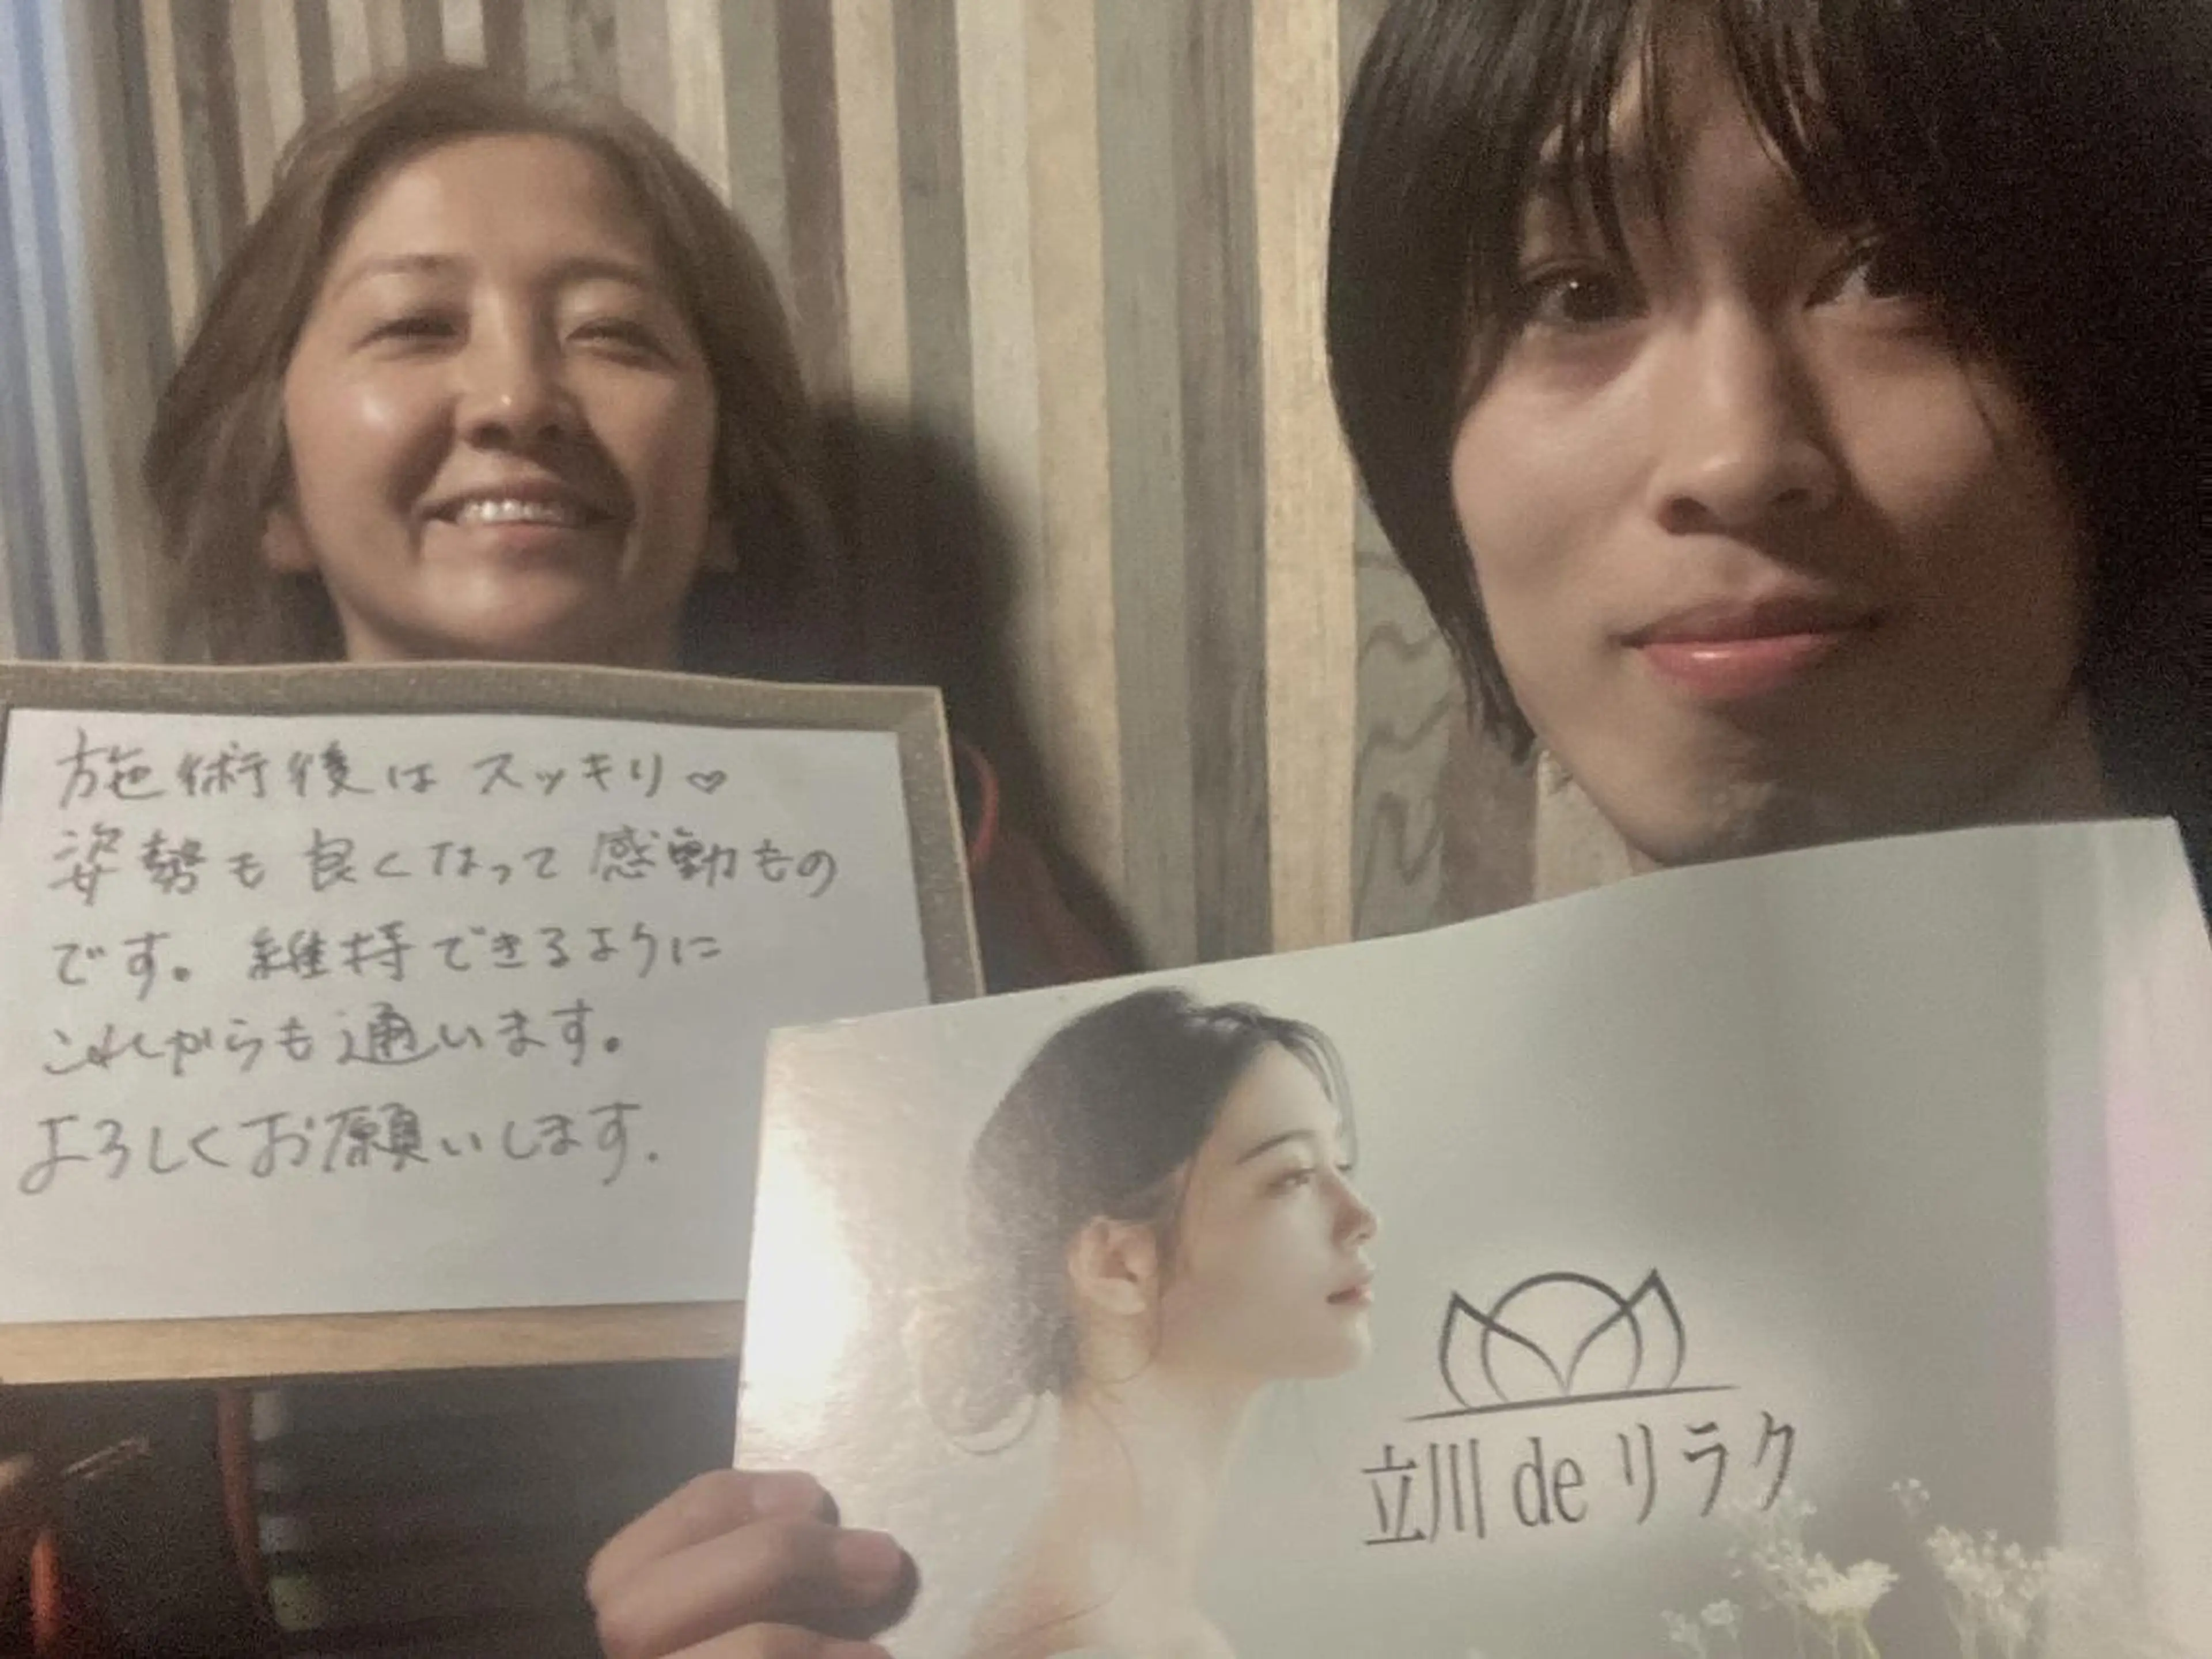 施術後はスッキリ♡
姿勢も良くなって感動もの
です。維持できるように
これからも通います。
よろしくお願いします.
立川 de リラク